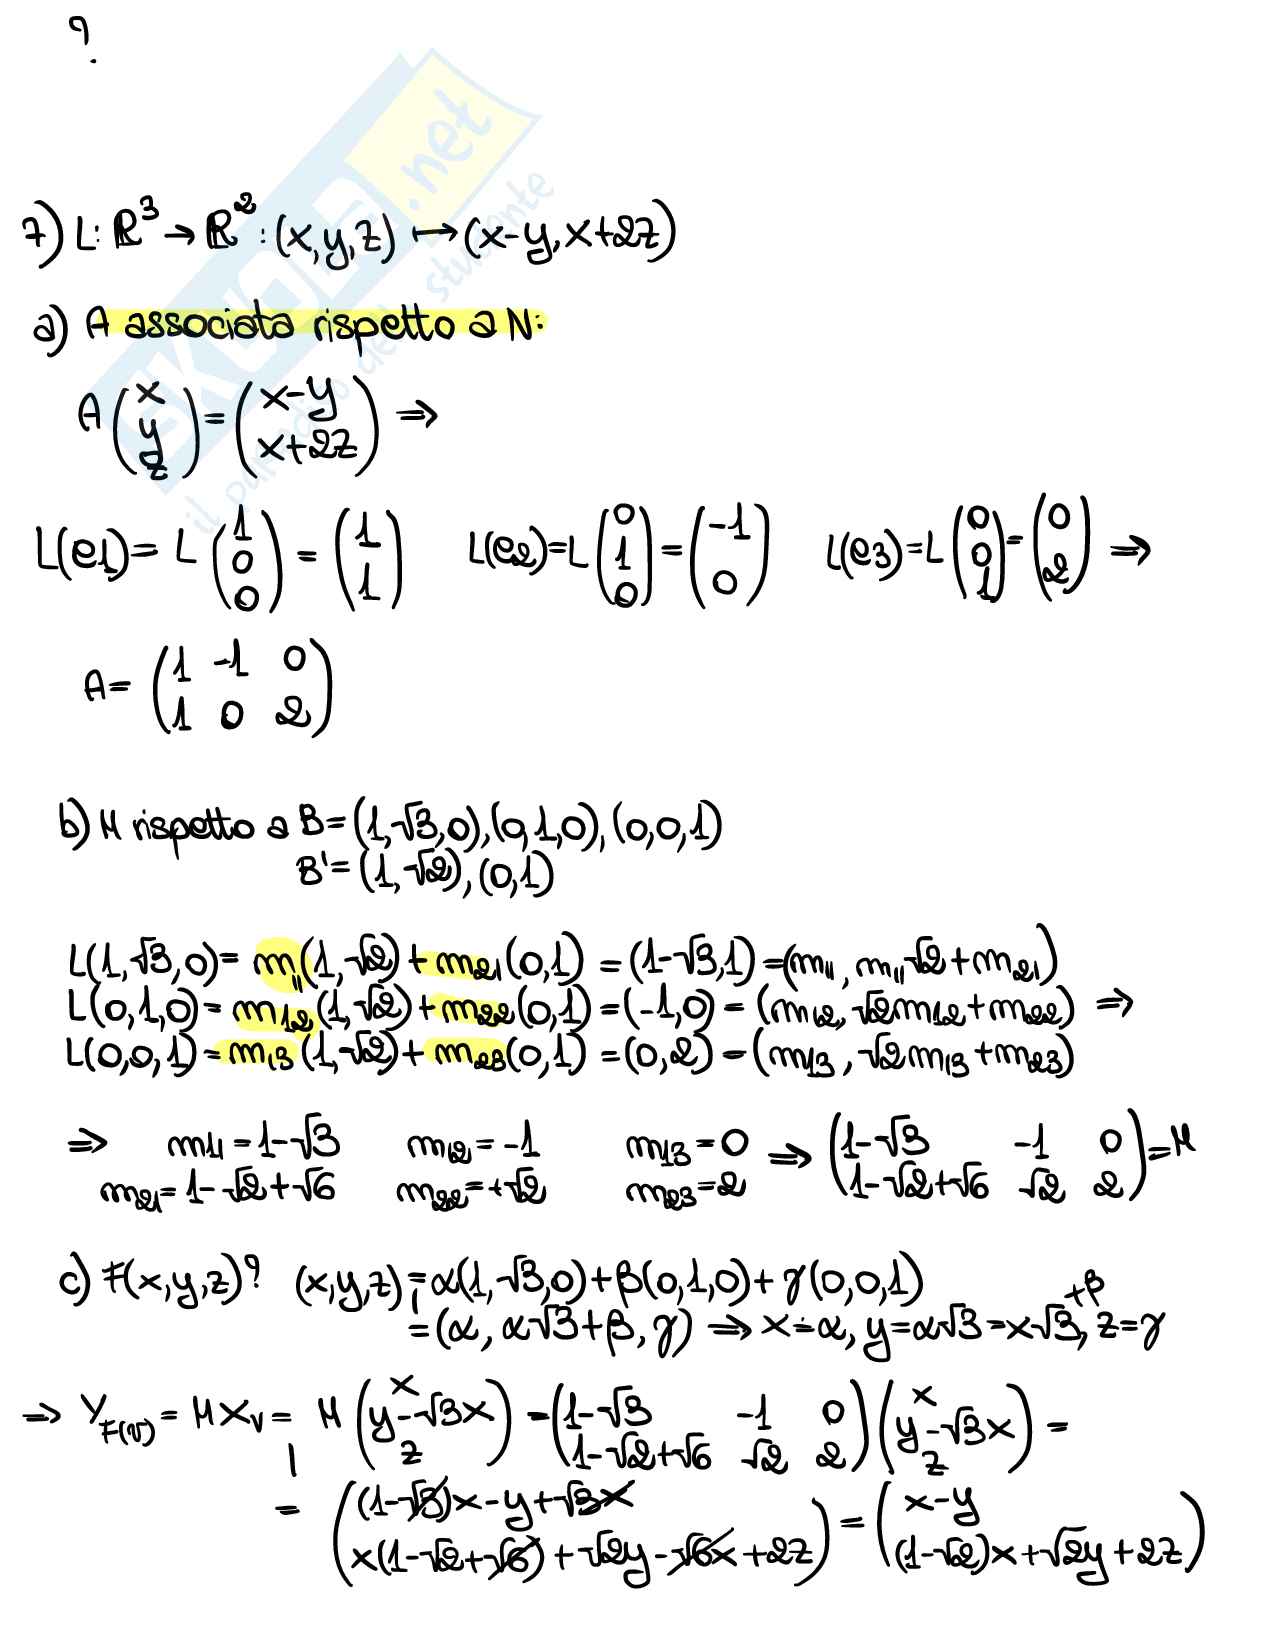 ?
7) L: R³ → R² : (x,y,z) ↦ (x-y, x+2z)
a) A associata rispetto a N:
A (x y z) = (x-y x+2z) ⇒
L(e1) = L (1 0 0) = (1 1) L(e2) = L (0 1 0) = (-1 0) L(e3) = L (0 0 1) = (0 2) ⇒
A = (1 -1 0
1 0 2)
b) M rispetto a B = (1,√3,0), (0,1,0), (0,0,1)
B' = (1,√2), (0,1)
L(1,√3,0) = m11(1,√2) + m21(0,1) = (1-√3,1) = (m11, m11√2 + m21)
L(0,1,0) = m12(1,√2) + m22(0,1) = (-1,0) = (m12, √2m12 + m22) ⇒
L(0,0,1) = m13(1,√2) + m23(0,1) = (0,2) = (m13, √2m13 + m23)
⇒ m11 = 1-√3 m12 = -1 m13 = 0 ⇒ (1-√3 -1 0
m21 = 1-√2+√6 m22 = +√2 m23 = 2 1-√2+√6 √2 2) = M
c) F(x,y,z)? (x,y,z) = α(1,√3,0) + β(0,1,0) + γ(0,0,1)
= (α, α√3+β, γ) ⇒ x=α, y=α√3=x√3+β, z=γ
⇒ Y_F(v) = M X_v = M (x y-√3x z) = (1-√3 -1 0
1-√2+√6 √2 2) (x y-√3x z) =
= ((1-√3)x - y + √3x
x(1-√2+√6) + √2y - √6x + 2z) = (x-y
(1-√2)x + √2y + 2z)
SKUOLA.net
il paradiso dello studente